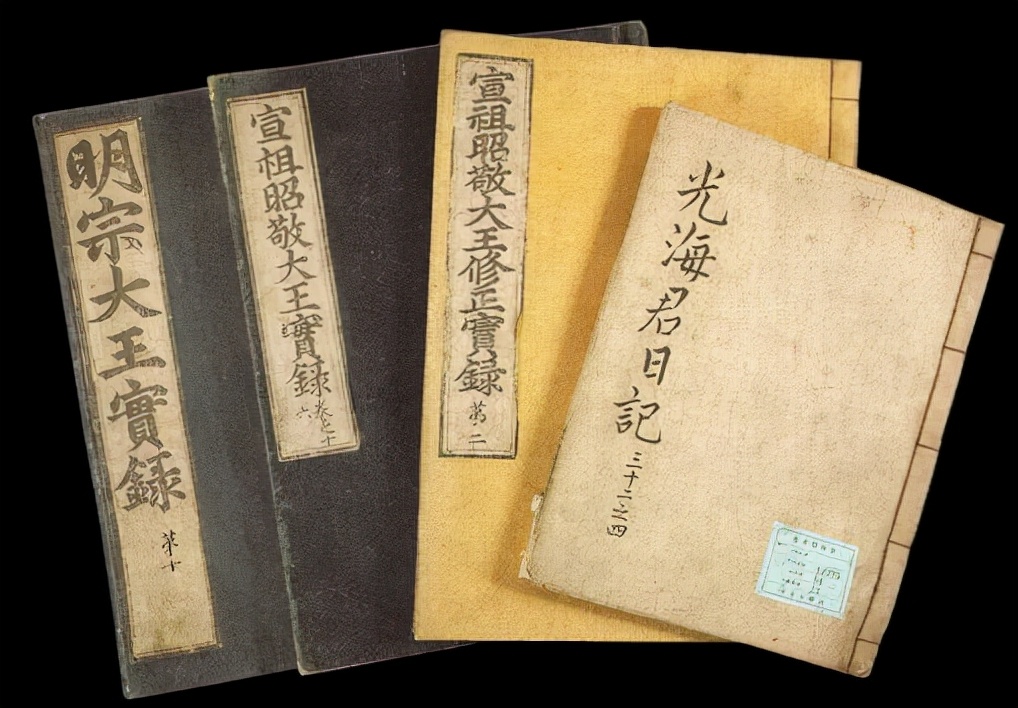 明宗大王實錄
第十
宣祖昭敬大王實錄
卷之十
六
宣祖昭敬大王修正實錄
第二
光海君日記
三十二之四